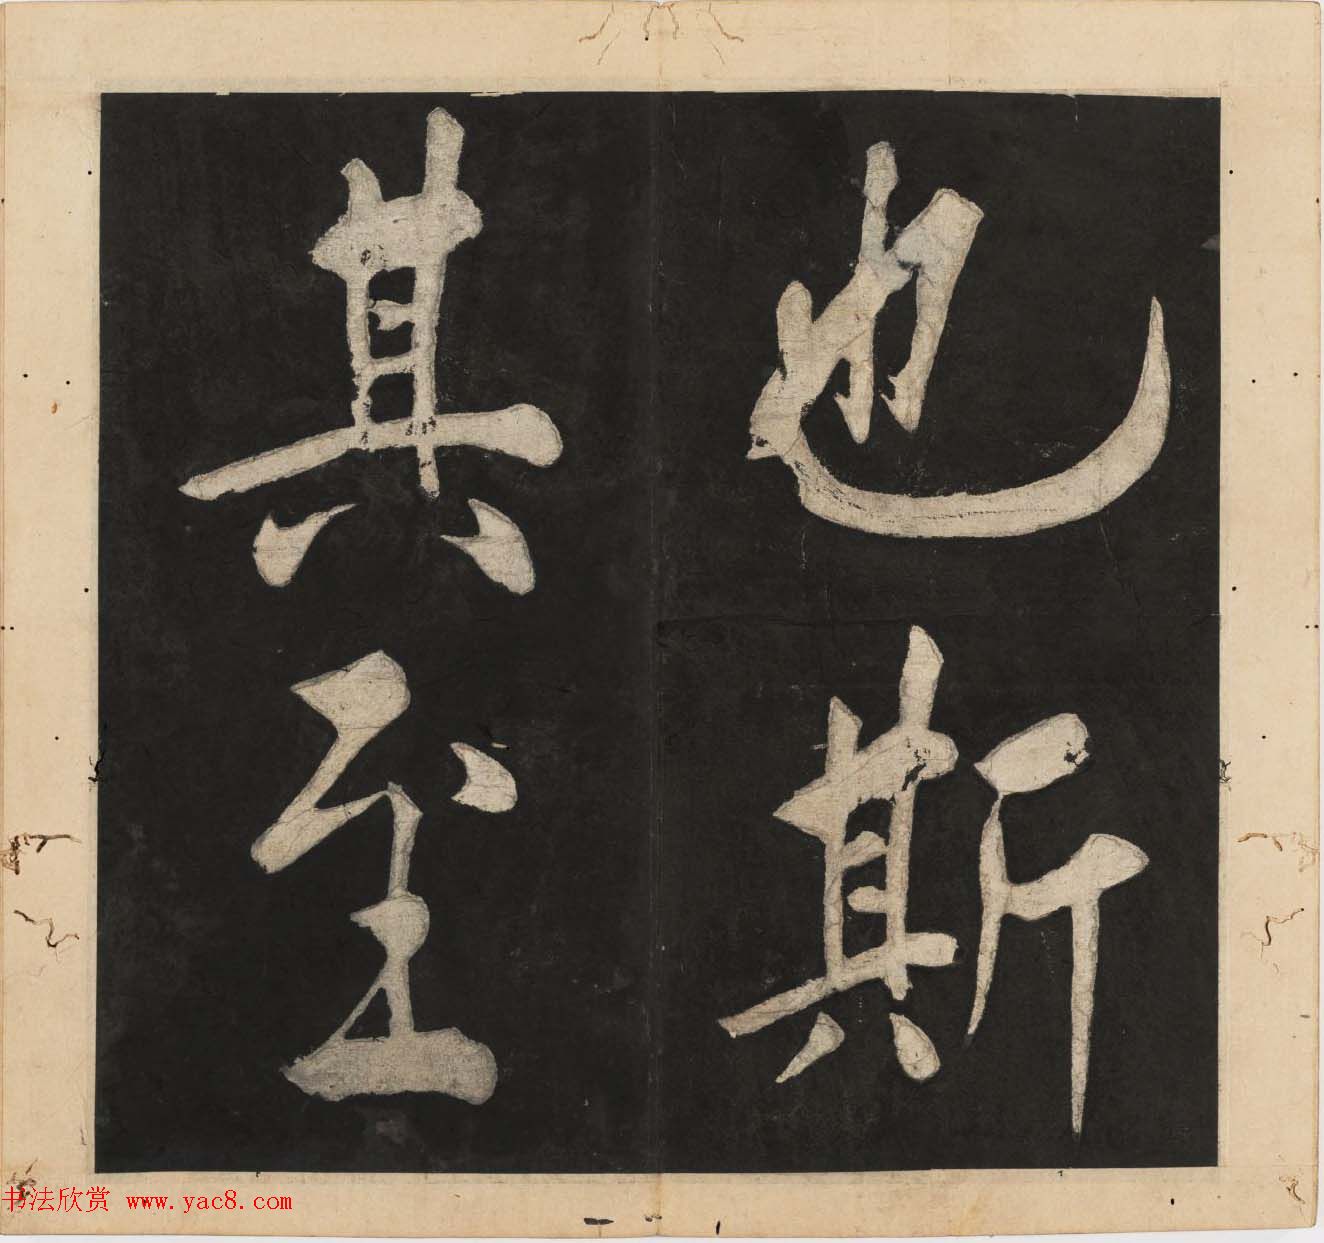 也斯
其至
书法欣赏 www.yac8.com